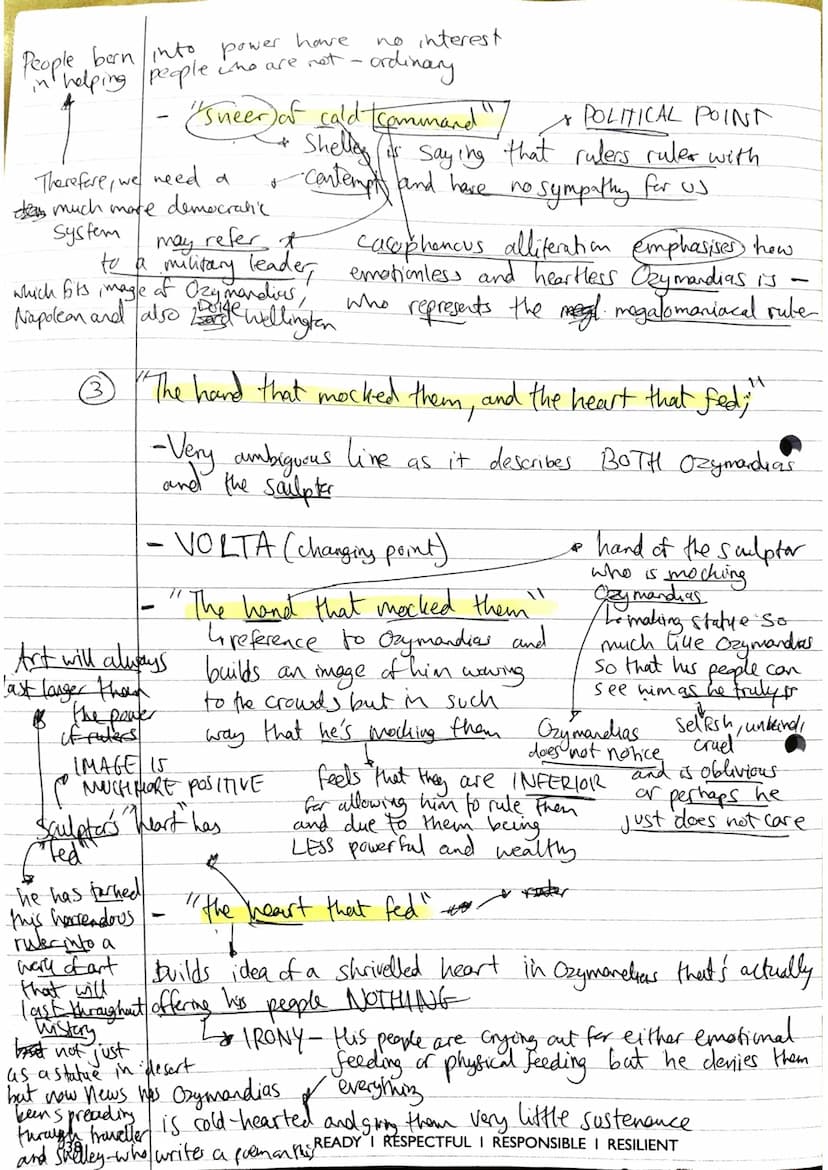 People born into power have no interest
in helping people who are not - ordinary
- "sneer of cold command"
POLITICAL POINT
Shelley is saying that rulers ruler with
contempt and have no sympathy for us
Therefore, we need a
much more democratic
system
may refer
to a military leader,
which fits image of Ozymandias,
Napolean and also Duke Wellington
cacophonous alliteration emphasises how
emotionless and heartless Ozymandias is -
who represents the megalomaniacal ruler
③ "The hand that mocked them, and the heart that fed;"
- Very ambiguous line as it describes BOTH Ozymandias
and the sculpter
- VOLTA (changing point)
- "The hand that mocked them"
reference to Ozymandias and
builds an image of him waving
to the crowds but in such
way that he's mocking them
feels that they are INFERIOR
for allowing him to rule them
and due to them being
LESS powerful and wealthy
hand of the sculptor
who is mocking
Ozymandias
making statue so
much like Ozymandias
so that his people can
see him as he truly is
selfish, unkind,
cruel
Ozymandias
does not notice
and is oblivious
or perhaps he
just does not care
Art will always
last longer than
the power
of rulers
IMAGE IS
MUCH MORE POSITIVE
Sculptor's "heart" has
"fed"
he has turned
this horrendous
ruler into a
work of art
that will
last throughout
history
not just
as a statue in desert
but now news has
been spreading
through traveller
and Shelley - who writer a poem on this
- "the heart that fed"
ruler
builds idea of a shrivelled heart in Ozymandias that's actually
offering his people NOTHING
IRONY - His people are crying out for either emotional
feeding or physical feeding but he denies them
everything
Ozymandias
is cold-hearted and giving them very little sustenance
READY I RESPECTFUL I RESPONSIBLE I RESILIENT